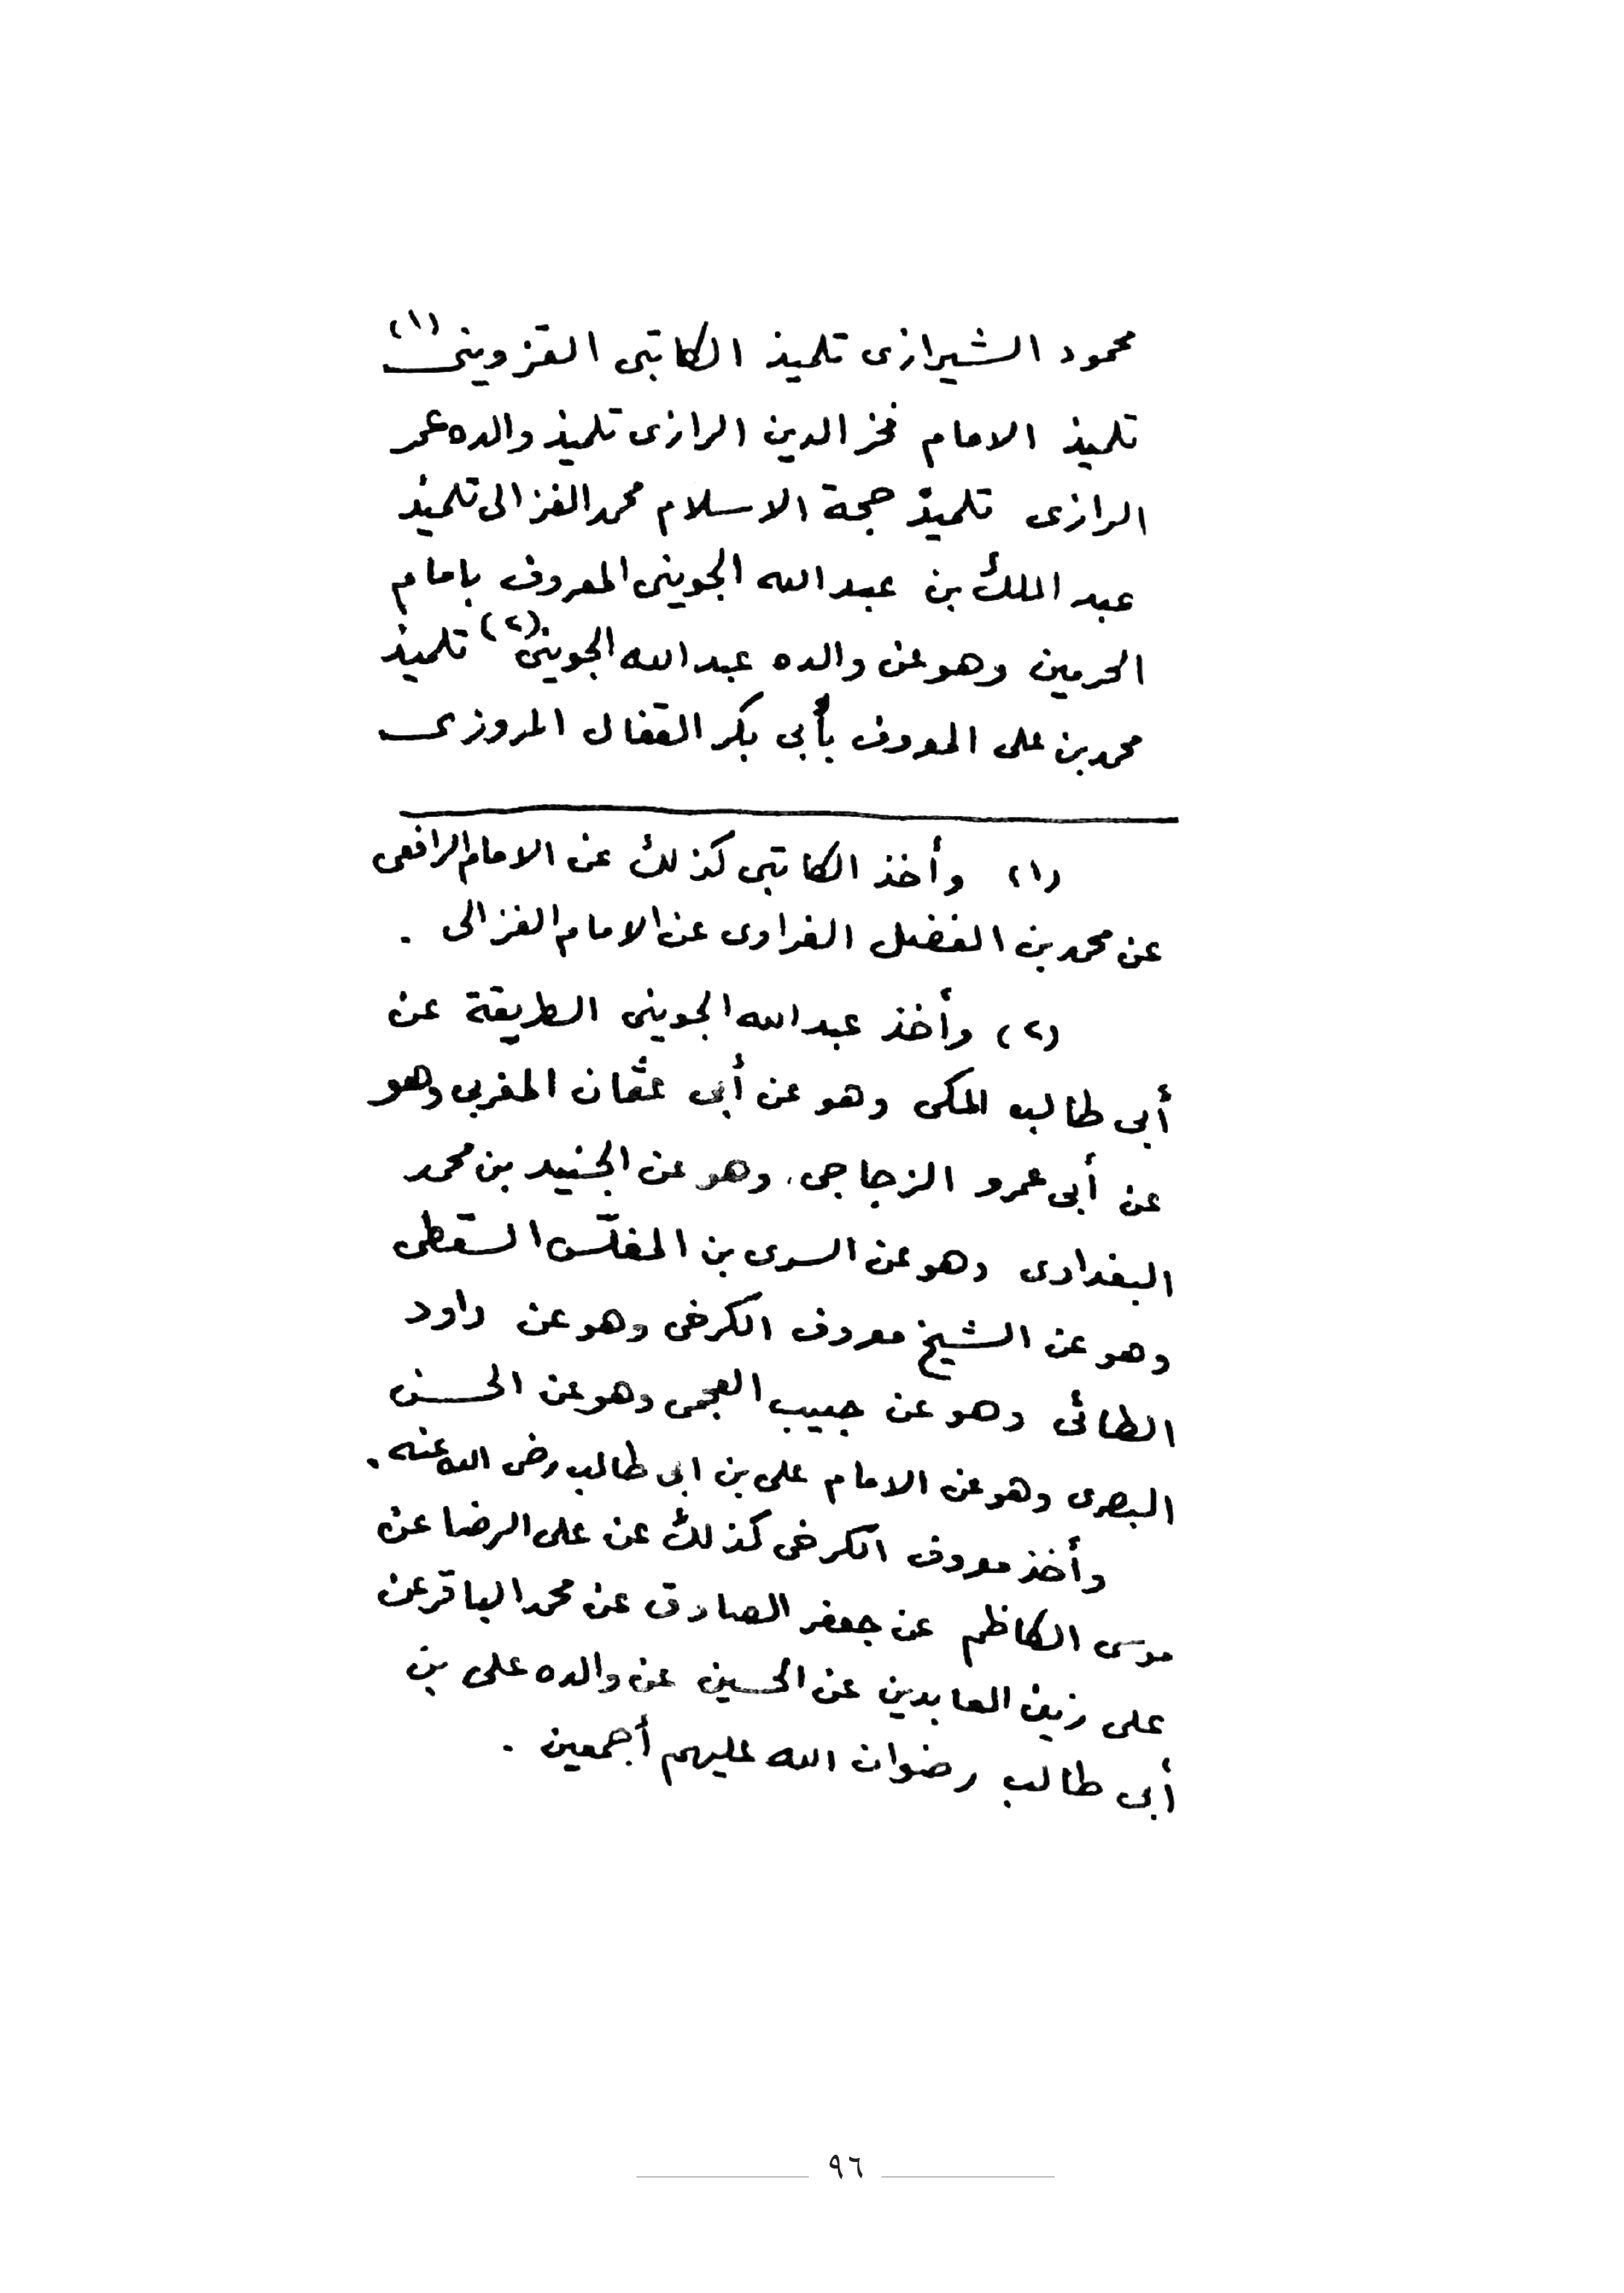 محمود الشيرازى تلميذ الكاتبى القزوينى (١)
تلميذ الامام فخر الدين الرازى تلميذ والده عمر
الرازى تلميذ حجة الاسلام محمد الغزالى تلميذ
عبد الملك بن عبد الله الجوينى المعروف بامام
الحرمين وهو عن والده عبد الله الجوينى (٢) تلميذ
محمد بن على المعروف بأبى بكر القفال المروزى
(١) وأخذ الكاتبى كذلك عن الامام الرافعى
عن محمد بن الفضل الفراوى عن الامام الغزالى .
(٢) وأخذ عبد الله الجوينى الطريقة عن
أبى طالب المكى وهو عن أبى عثمان المغربى وهو
عن أبى عمرو الزجاجى، وهو عن الجنيد بن محمد
البغدادى وهو عن السرى بن المغلّس السقطى
وهو عن الشيخ معروف الكرخى وهو عن داود
الطائى وهو عن حبيب العجمى وهو عن الحسن
البصرى وهو عن الامام على بن ابى طالب رضى الله عنه .
وأخذ معروف الكرخى كذلك عن على الرضا عن
موسى الكاظم عن جعفر الصادق عن محمد الباقر عن
على زين العابدين عن الحسين عن والده على بن
أبى طالب رضوان الله عليهم أجمعين .
٩٦